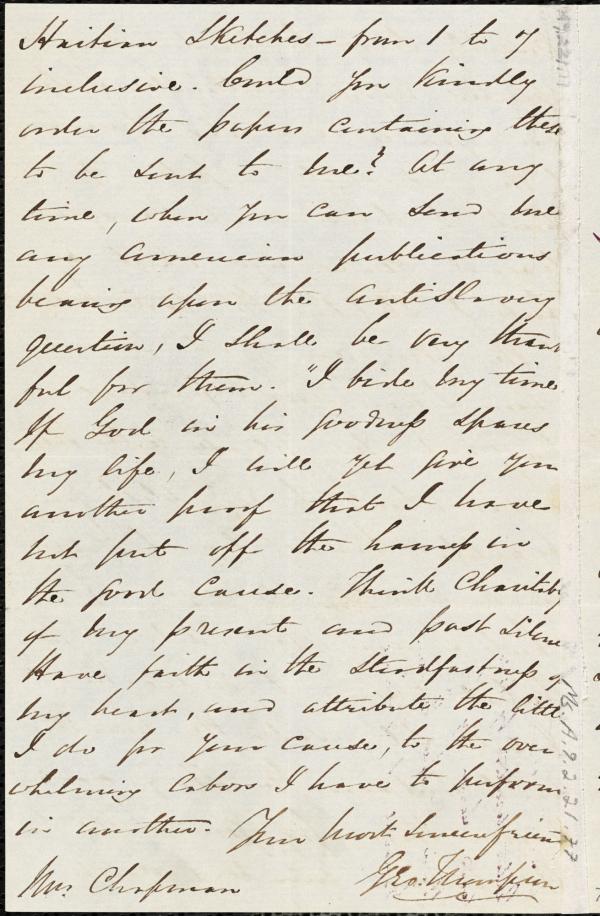 Haitian Sketches — from 1 to 7
inclusive. Could you kindly
order the papers containing these
to be sent to me? At any
time, when you can send me
any American publications
bearing upon the antislavery
question, I shall be very thank
ful for them. "I bide my time
If God in his goodness spares
my life, I will yet give you
another proof that I have
not put off the harness in
the good cause. Think charitably
of my present and past silence
Have faith in the steadfastness of
my heart, and attribute the little
I do for your cause, to the over
whelming labors I have to perform
in another. Your most sincere friend
Geo. Thompson
Mrs Chapman